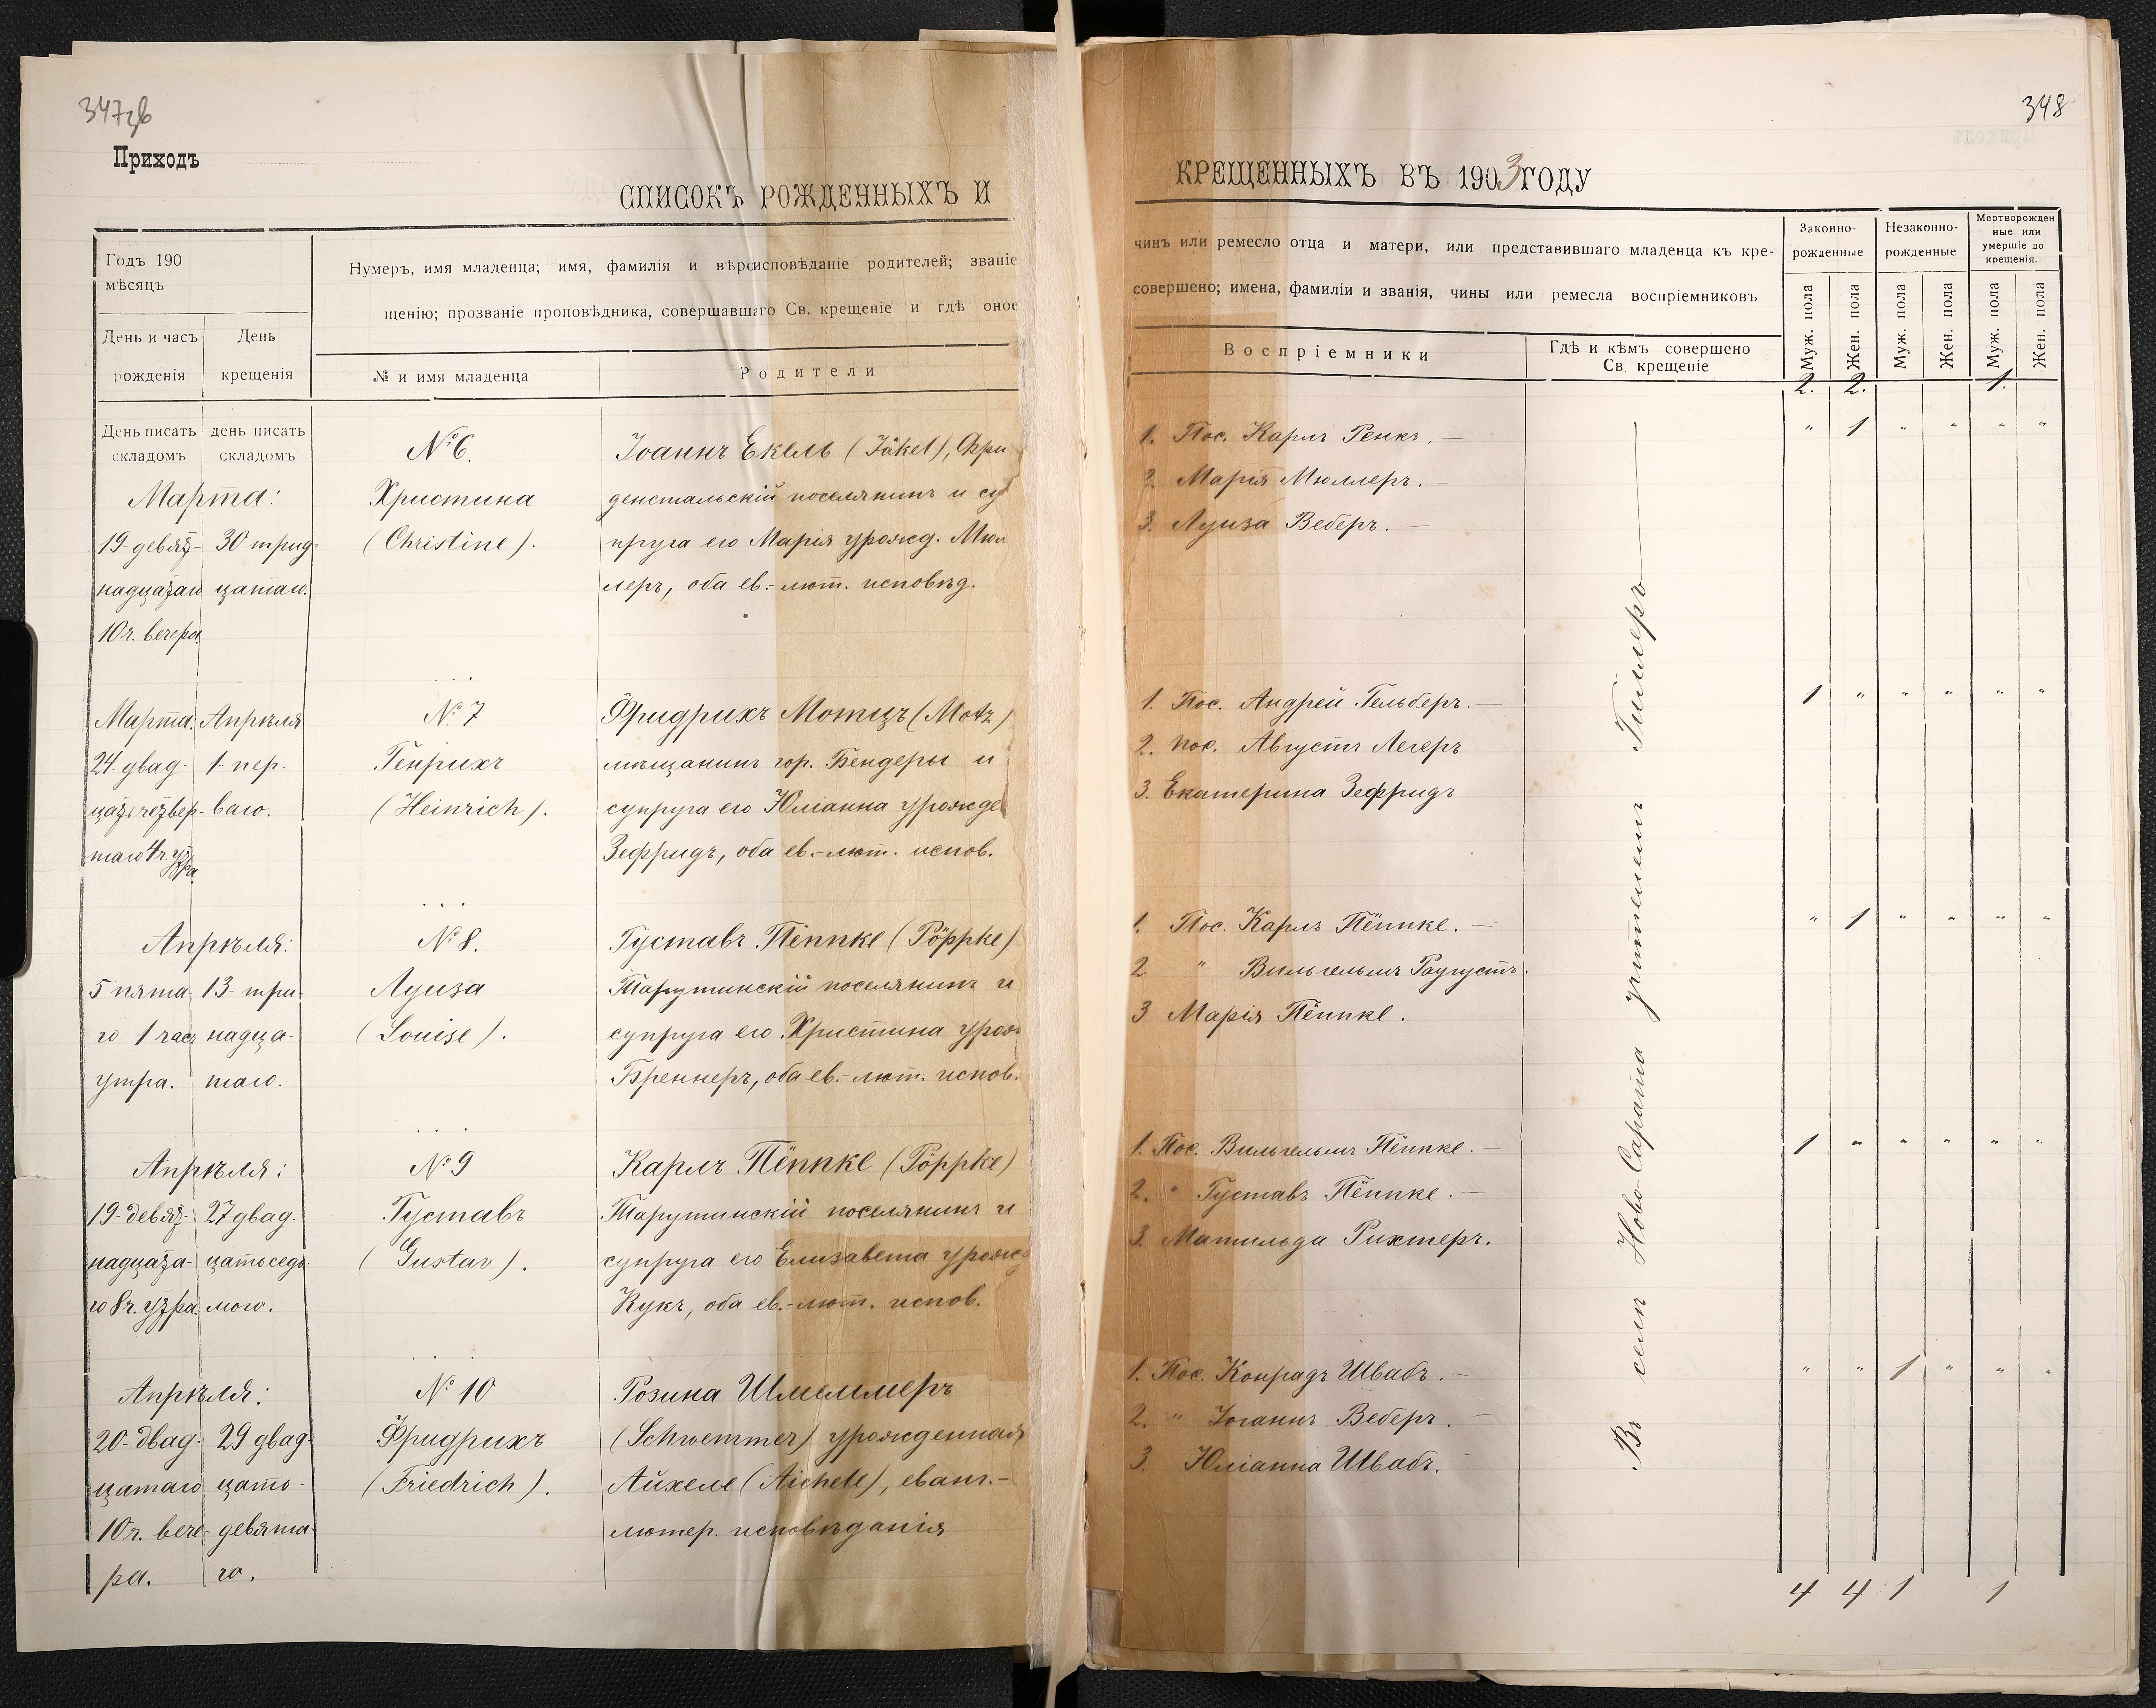 347об
Приходъ
СПИСОКЪ РОЖДЕННЫХЪ И
Годъ 190
мѣсяцъ
Нумеръ, имя младенца; имя, фамилія и вѣрсисповѣданіе родителей; званіе
щенію; прозваніе проповѣдника, совершавшаго Св. крещеніе и гдѣ оное
День и часъ рожденія
День крещенія
№ и имя младенца
Родители
День писать складомъ
день писать складомъ
Марта:
19-девят-
надцатаго
10 ч. вечера
30 трид-
цатаго.
№ 6.
Христина
(Christine).
Іоаннъ Екель (Jäkel), Фри
денстальскій поселянинъ и су
пруга его Марія урожд. Мюл
леръ, оба ев.-лют. исповѣд.
Марта.
24-двад-
цатьчетвер-
таго 4 ч. утра
Апрѣля
1-пер-
ваго.
№ 7
Генрихъ
(Heinrich).
Фридрихъ Мотцъ (Motz)
мѣщанинъ гор. Бендеры и
супруга его Юліанна урожде
Зефридъ, оба ев.-лют. испов.
Апрѣля:
5 пята
го 1 часъ
утра.
13-три-
надца-
таго.
№ 8.
Луиза
(Louise).
Густавъ Пёппке (Pöppke)
Тарутинскій поселянинъ и
супруга его Христина урож
Бреннеръ, оба ев.-лют. испов.
Апрѣля:
19-девят-
надцата-
го 8 ч. утра
27-двад-
цатьседь-
мого.
№ 9
Густавъ
(Gustav).
Карлъ Пёппке (Pöppke)
Тарутинскій поселянинъ и
супруга его Елизавета урожд
Кукъ, оба ев.-лют. испов.
Апрѣля:
20-двад-
цатаго
10 ч. вече-
ра.
29 двад-
цать-
девята-
го.
№ 10
Фридрихъ
(Friedrich).
Розина
(Schwemmer) урожденная
Айхеле (Aichele), еванг.-
лютер. исповѣданія
348
КРЕЩЕННЫХЪ ВЪ 1903 ГОДУ
чинъ или ремесло отца и матери, или представившаго младенца къ кре-
совершено; имена, фамиліи и званія, чины или ремесла воспріемниковъ
Воспріемники
Гдѣ и кѣмъ совершено
Св. крещеніе
Законно-
рожденные
Незаконно-
рожденные
Мертворожден
ные или
умершіе до
крещенія.
Муж. пола
Жен. пола
Муж. пола
Жен. пола
Муж. пола
Жен. пола
2. 2. 1.
1. Пос. Карлъ Ренкъ.
" 1 " " " "
2. Марія Мюллеръ.
3. Луиза Веберъ.
1. Пос. Андрей Гельберъ.
1 " " " " "
2. пос. Августъ Легеръ
3. Екатерина Зефридъ
1. Пос. Карлъ Пёппке.
" 1 " " " "
2 " Вильгельмъ Раугустъ.
3 Марія Пёппке.
1. Пос. Вильгельмъ Пёппке.
1 " " " " "
2. " Густавъ Пёппке.
3. Матильда Рихтеръ.
1. Пос. Конрадъ Швабъ.
" " 1 " " "
2. " Іоганнъ Веберъ.
3. Юліанна Швабъ.
Въ селѣ Ново-Сарата учителемъ
4 4 1 1